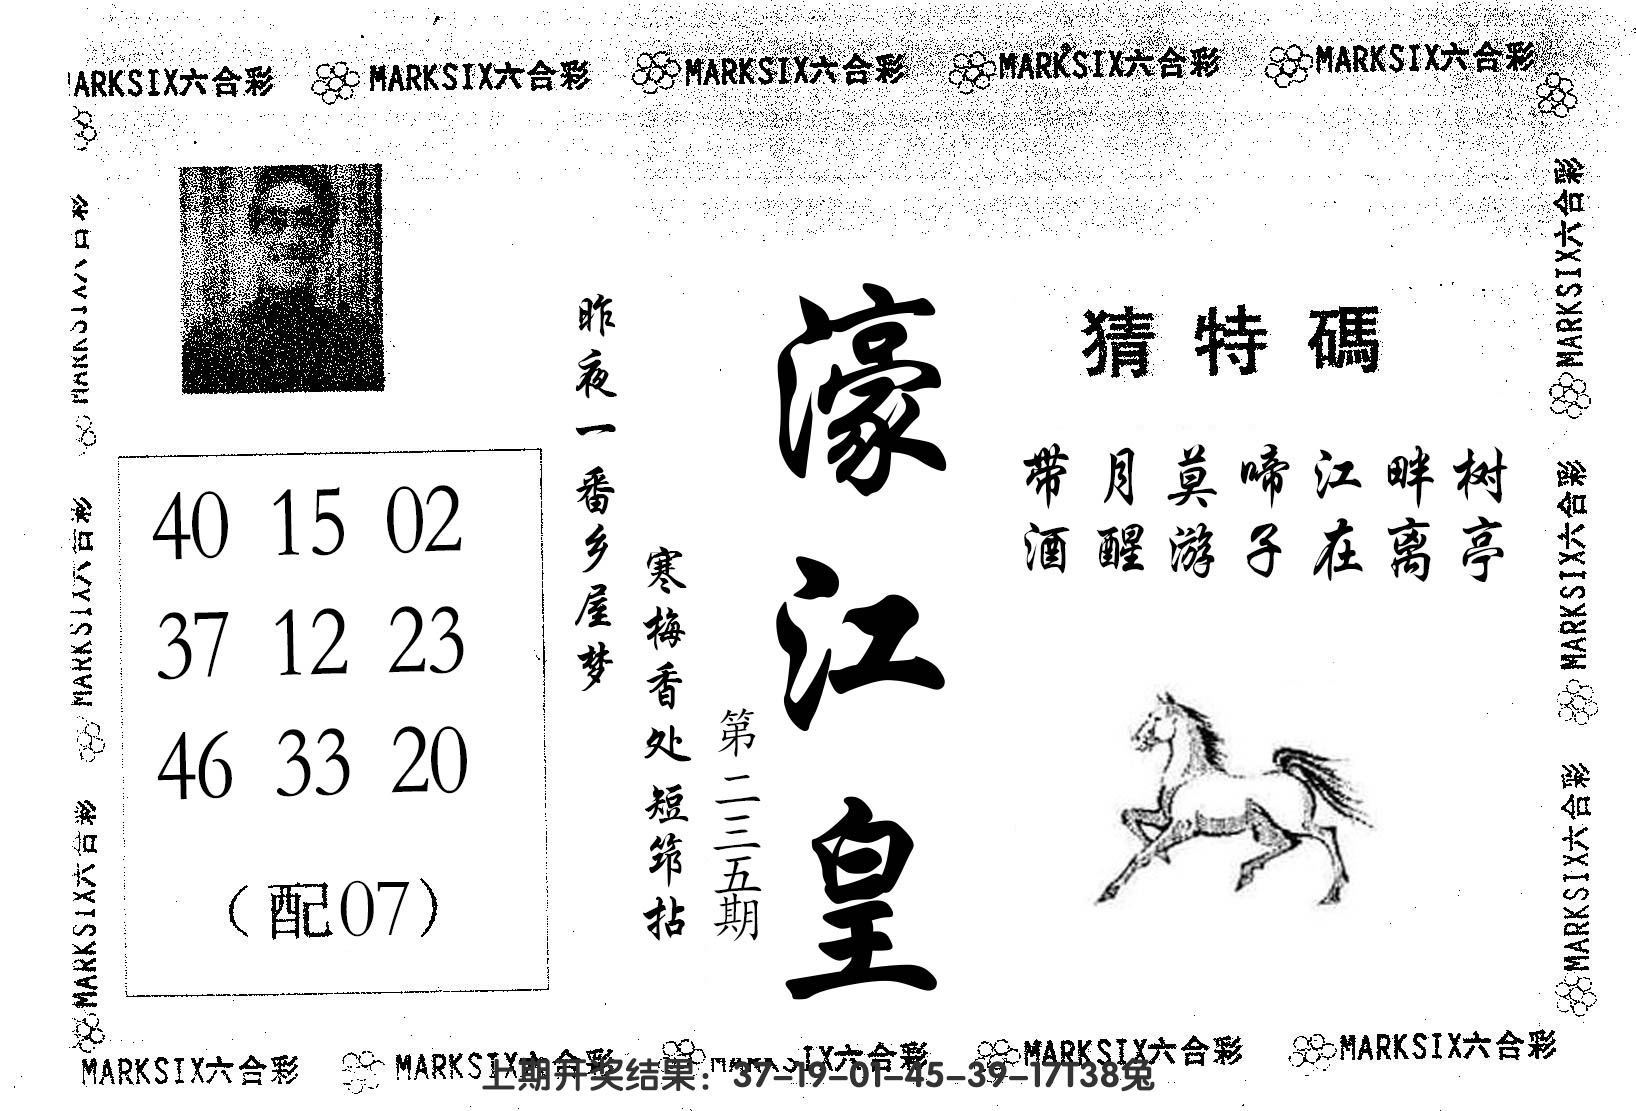 MARKSIX六合彩 MARKSIX六合彩 MARKSIX六合彩 MARKSIX六合彩
MARKSIX六合彩
MARKSIX六合彩
MARKSIX六合彩
MARKSIX六合彩
MARKSIX六合彩
40 15 02
37 12 23
46 33 20
（配07）
昨夜一番乡屋梦
寒梅香处短筇拈
第二三五期
濠江皇
猜特碼
带月莫啼江畔树
酒醒游子在离亭
MARKSIX六合彩
MARKSIX六合彩
MARKSIX六合彩
MARKSIX六合彩 MARKSIX六合彩 MARKSIX六合彩 MARKSIX六合彩
上期开奖结果：37-19-01-45-39-17T38兔